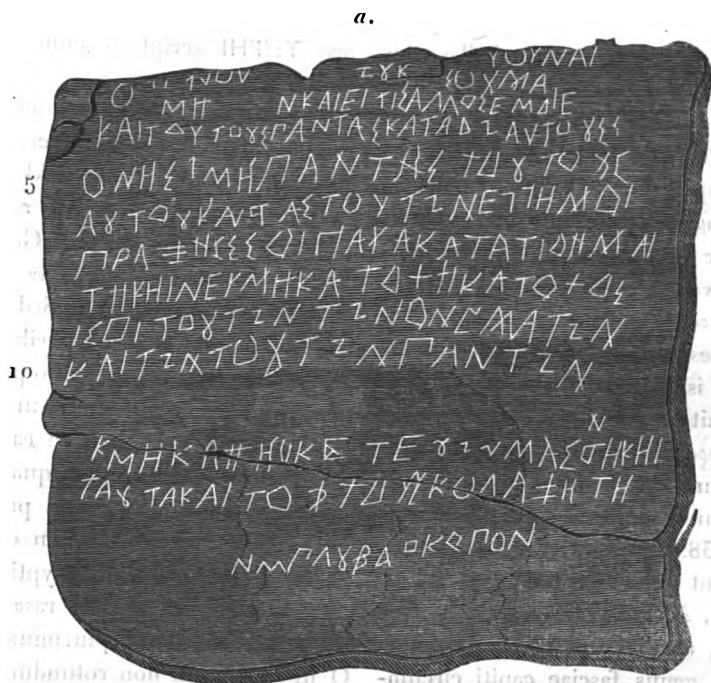 a.
ΥΟΥΝΑΙ
Ο ΝΟΥ ΣΥΚ ΣΟΥΧΜΑ
ΜΗ ΝΚΑΙΕΙΤΙΣΑΛΛΟΣΕΜΔΙΕ
ΚΑΙΤΟΥΤΟΥΣΠΑΝΤΑΣΚΑΤΑΔΩΑΥΤΟΥΣΣ
5 ΟΝΗΣΙΜΗΠΑΝΤΑΣ ΤΟΥΤΟΥΣ
ΑΥΤΟΥΚΝΤΑΣΤΟΥΤΩΝΕΠΗΜΟΙ
ΠΡΑΞΗΣΣΣΟΙΠΑΥΑΚΑΤΑΤΙΘΗΜΑΙ
ΤΗΚΗΙΝΕΚΜΗΚΑΤΟ+ΗΚΑΤΟ+ΟΣ
ΙΣΟΙΤΟΥΤΩΝ ΤΩΝΟΝΣΜΑΤΩΝ
10 ΚΑΙΤΩΝΤΟΥΤΩΝΠΑΝΤΩΝ
Ν
ΚΜΗΚΑΠΗΟΚΕ ΤΕΥΩΝΜΑΣΘΗΚΗΙ
ΤΑΥΤΑΚΑΙΤΟ ΚΟΛΑΞΗΤΗ
ΝΜΠΛΥΒΑΟΚΩΠΟΝ